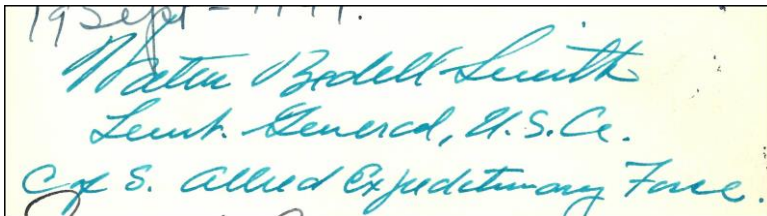 19 Sept - 1944.
Walter Bedell Smith
Lieut. General, U.S.A.
C of S. Allied Expeditionary Force.